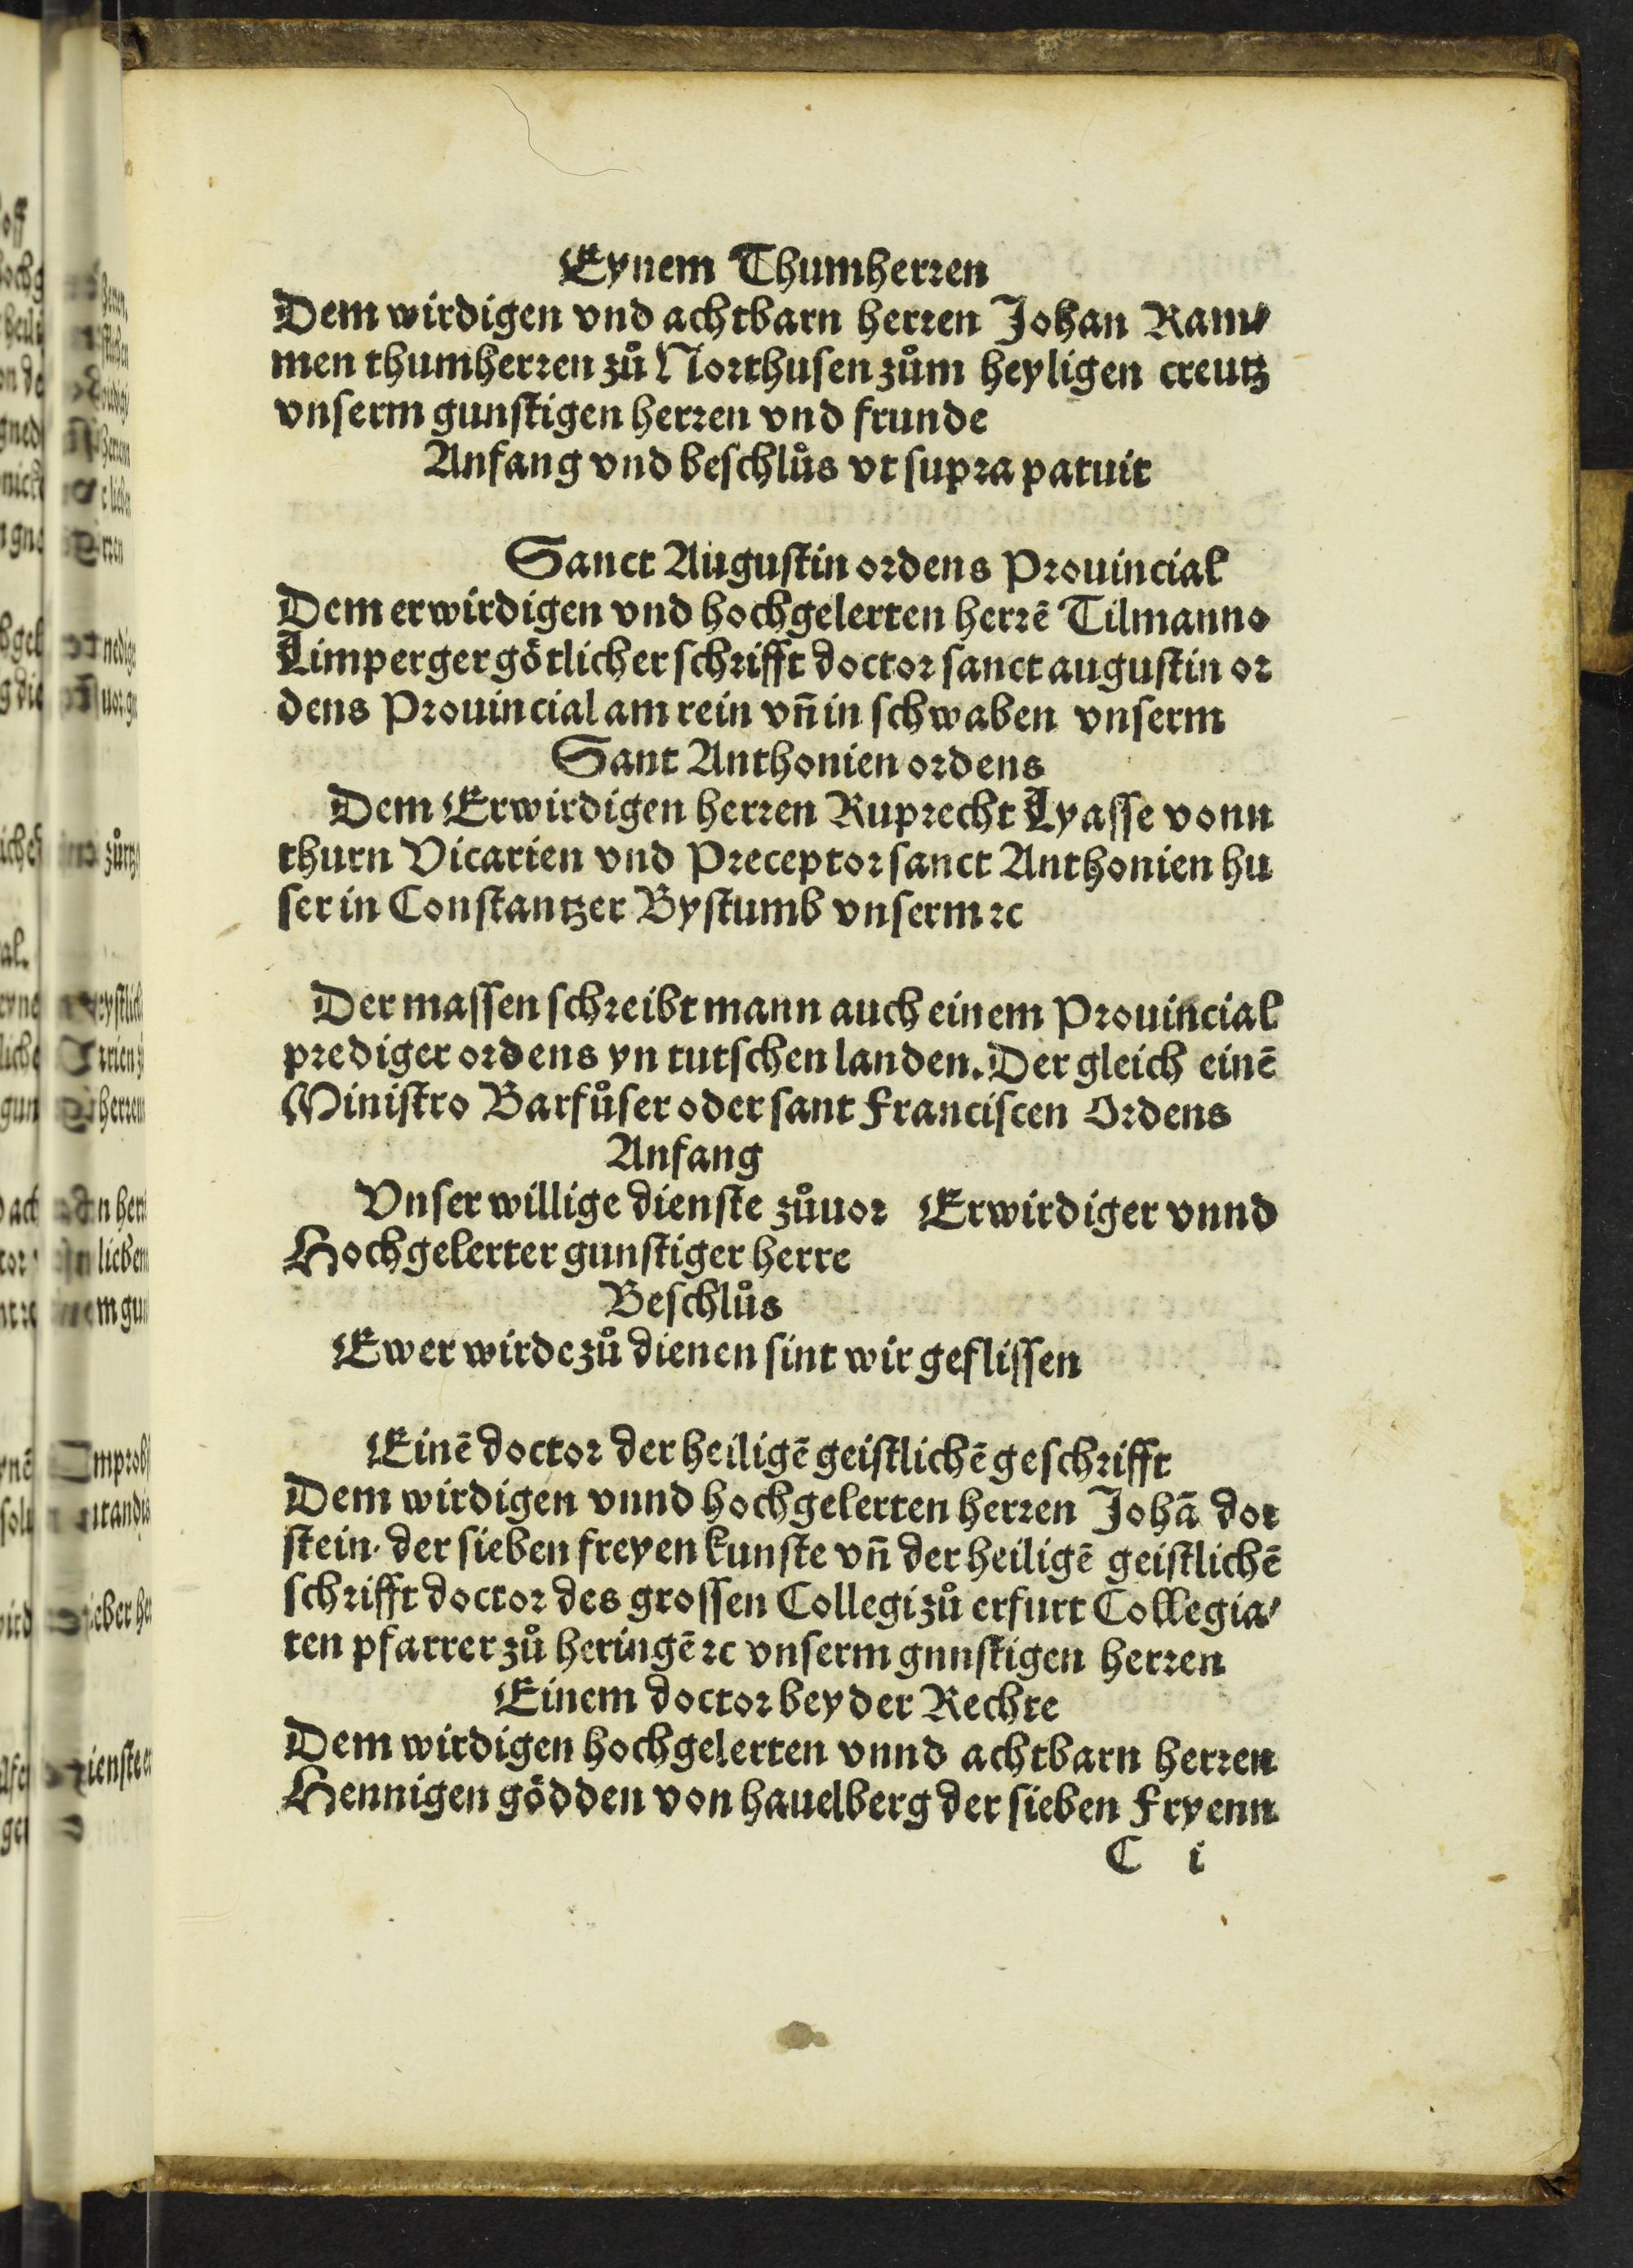 Eynem Thumherꝛen
Dem wirdigen vnd achtbarn herꝛen Johan Ram⸗
men thumherꝛen zů Noꝛthusen zům heyligen creutz
vnserm gunstigen herꝛen vnd frunde
Anfang vnd beschlůs vt supꝛa patuit
Sanct Augustin oꝛdens Pꝛouincial
Dem erwirdigen vnd hochgelerten herꝛē Tilmanno
Limperger götlicher schꝛifft doctoꝛ sanct augustin oꝛ
dens Pꝛouincial am rein vñ in schwaben vnserm
Sant Anthonien oꝛdens
Dem Erwirdigen herꝛen Rupꝛecht Lyasse vonn
thurn Vicarien vnd Pꝛeceptoꝛ sanct Anthonien hu
ser in Constantzer Bystumb vnserm ꝛc
Der massen schꝛeibt mann auch einem Pꝛouincial
pꝛediger oꝛdens yn tutschen landen. Der gleich einē
Ministro Barfůser oder sant Franciscen Oꝛdens
Anfang
Vnser willige dienste zůuoꝛ Erwirdiger vnnd
Hochgelerter gunstiger herre
Beschlůs
Ewer wirde zů dienen sint wir geflissen
Einē doctoꝛ der heiligē geistlichē geschꝛifft
Dem wirdigen vnnd hochgelerten herꝛen Johā dor
stein· der sieben freyen kunste vñ der heiligē geistlichē
schꝛifft doctoꝛ des grossen Collegi zů erfurt Collegia⸗
ten pfarrer zů heringē ꝛc vnserm gnnstigen herꝛen
Einem doctoꝛ beyder Rechte
Dem wirdigen hochgelerten vnnd achtbarn herꝛen
Hennigen gödden von hauelberg der sieben Fryenn
C i